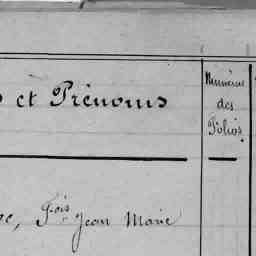 et Prénoms
Numéros
des
Folios
Fois Jean Marie